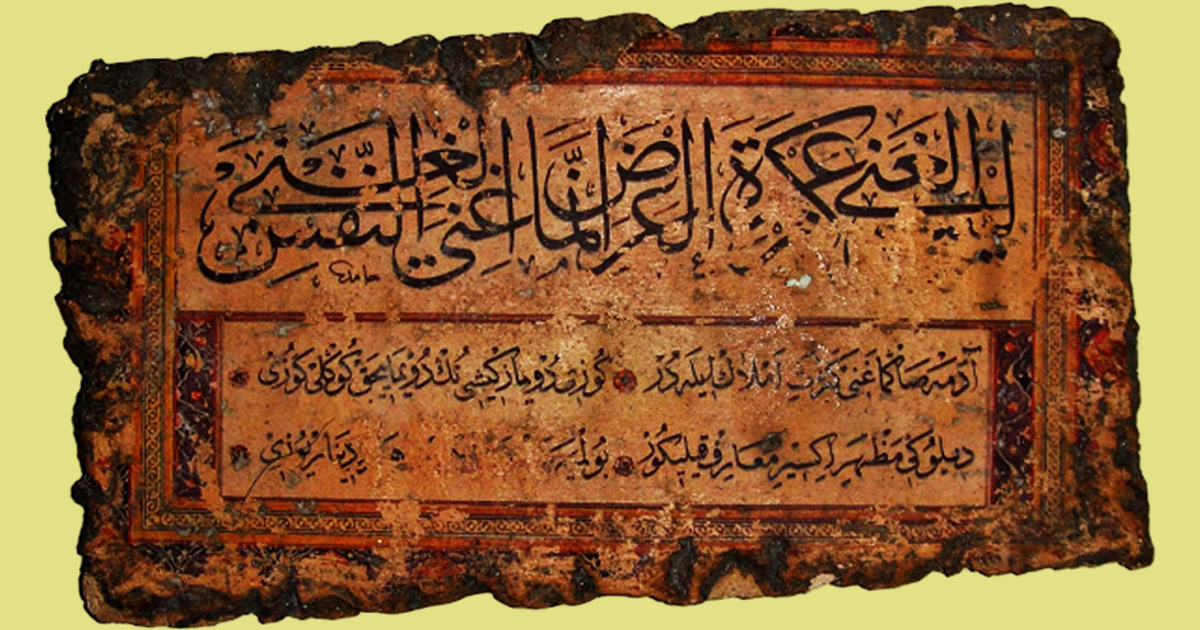 ليس الغنى عن كثرة العرض انما الغنى غنى النفس
حامد
آدمه صانما غنى كثرت املاك ايله در كوزى دويماز كيشى نك دويمايجق كوكلى كوزى
مظهر اكسير معارف قيله كور دينار يوزى